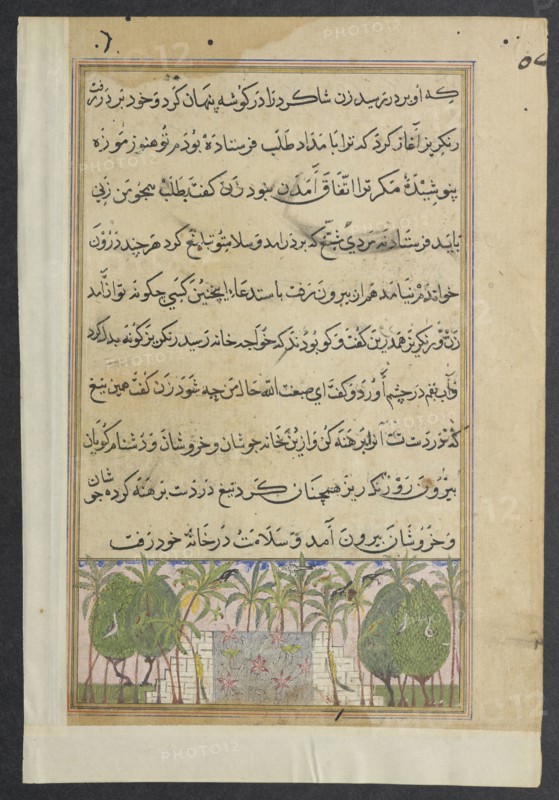 که او بر در رسید زن شاکرد را در کوشه پنهان کرد و خود بر در رفت
رنکریز آغاز کرد که ترا بامداد طلب فرستاده بودم تو هنوز موزه
پوشیده مکر ترا اتفاق آمدن نبود زن کفت بطلب همچو من زنی
باید فرستاد نه مردی تیغ که بر در آمد و سلام تو تبلیغ کرد هر چند درون
خواندم نیامد هم از بیرون رفت باستدعاء اینچنین کسی چکونه توان آمد
زن و رنکریز هم درین کفت و کو بودند که خواجه خانه رسید رنکریز کونه بدل کرد
و آب بقم در چشم آورد و کفت ای صبغت الله حال من چه شود زن کفت همین تیغ
که در دست تست آنرا برهنه کن و ازین خانه جوشان و خروشان و دشنام کویان
بیرون رو رنکریز همچنان کرد تیغ در دست برهنه کرده جوشان
و خروشان بیرون آمد و سلامت در خانه خود رفت
PHOTO12